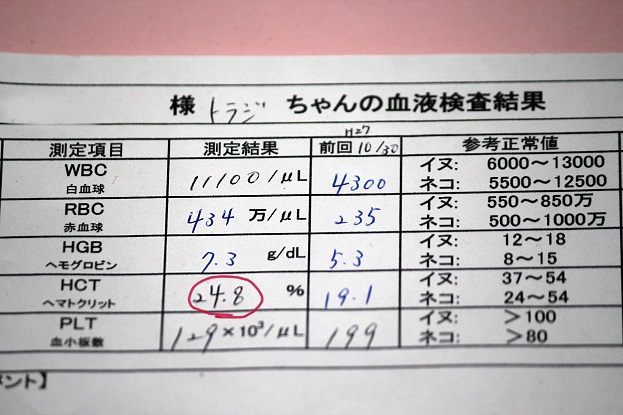 様 トラジ ちゃんの血液検査結果
H27
測定項目 測定結果 前回 10/30 参考正常値
WBC 11100 /μL 4300 イヌ: 6000～13000
白血球 ネコ: 5500～12500
RBC 434 万/μL 235 イヌ: 550～850万
赤血球 ネコ: 500～1000万
HGB 7.3 g/dL 5.3 イヌ: 12～18
ヘモグロビン ネコ: 8～15
HCT 24.8 % 19.1 イヌ: 37～54
ヘマトクリット ネコ: 24～54
PLT 129 ×10³/μL 199 イヌ: >100
血小板数 ネコ: >80
ント】